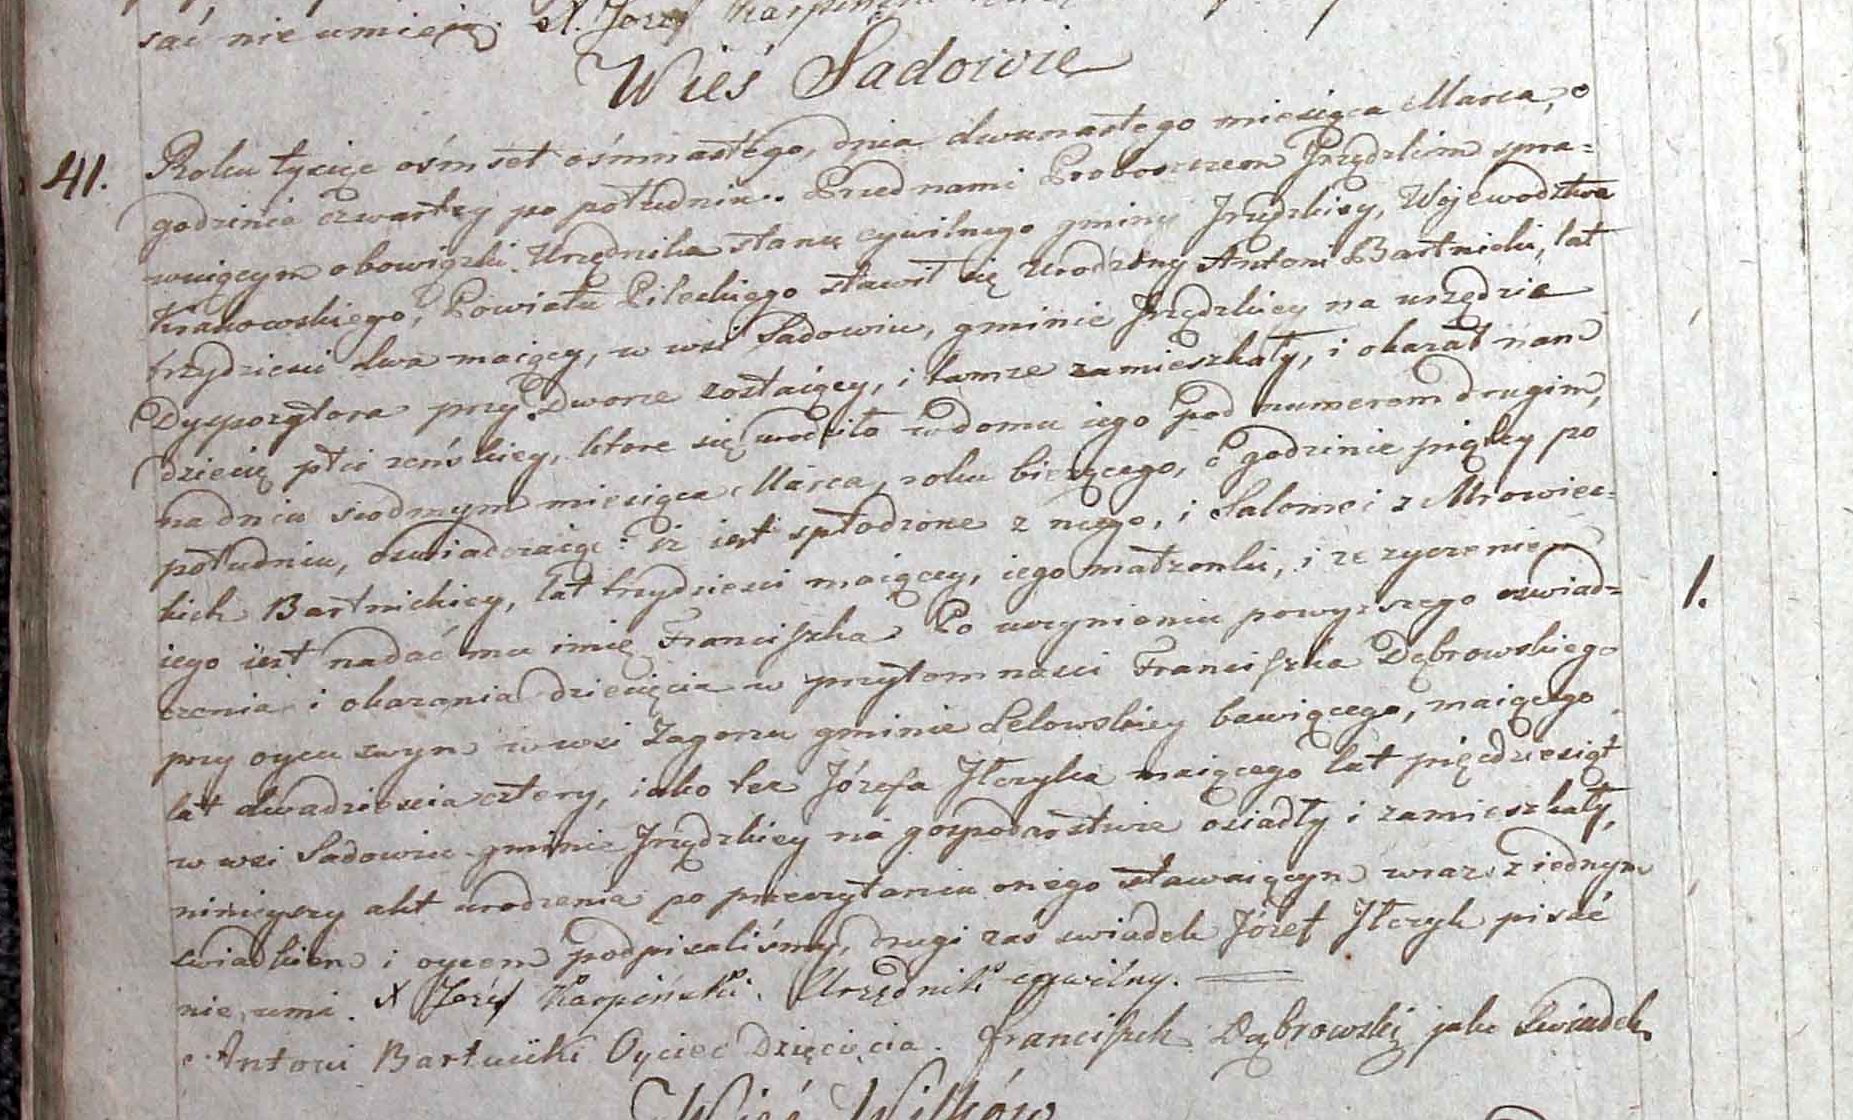 sać nie umieją. X. Jozef Karpiński
Wieś Sadowie
41. Roku tysiąc ośmset ośmnastego, dnia dwunastego miesiąca Marca, o
godzinie czwartey po południu. Przed nami Proboszczem Jrządzkim spra=
wuiącym obowiązki Urzędnika stanu cywilnego gminy Jrządzkiey, Wojewodztwa
Krakowskiego, Powiatu Pileckiego stawił się Urodzony Antoni Bartnicki, lat
trzydzieści dwa maiący, w wsi Sadowiu, gminie Jrządzkiey na urzędzie
Dyspozytora przy Dworze zostaiący, i tamże zamieszkały, i okazał nam
dziecię płci żeńskiey, które się urodziło w domu iego pod numerem drugim,
na dniu siodmym miesiąca Marca, roku bieżącego, o godzinie piątey po
południu, oświadczaiąc: iż iest spłodzone z niego, i Salomei z Mrowiec=
kich Bartnickiey, lat trzydzieści maiącey, iego małżonki, i że życzeniem
iego iest nadać mu imię Franciszka. Po uczynieniu powyższego oświad= 1.
czenia i okazania dziecięcia w przytomności Franciszka Dąbrowskiego
przy oycu swym w wsi Zagorzu gminie Lelowskiey bawiącego, maiącego
lat dwadzieścia cztery, iako też Józefa Jłczyka maiącego lat pięćdziesiąt
w wsi Sadowiu gminie Jrządzkiey na gospodarstwie osiadły i zamieszkały,
ninieyszy akt urodzenia po przeczytaniu onego stawaiącym wraz z iednym
świadkiem i oycem podpisaliśmy, drugi zaś świadek Józef Jłczyk pisać
nie umi. X Jozef Karpiński. Urzędnik cywilny.
Antoni Bartnicki Oyciec Dzięcięcia. Franciszek Dąbrowski jako Swiadek
Wieś Wilków